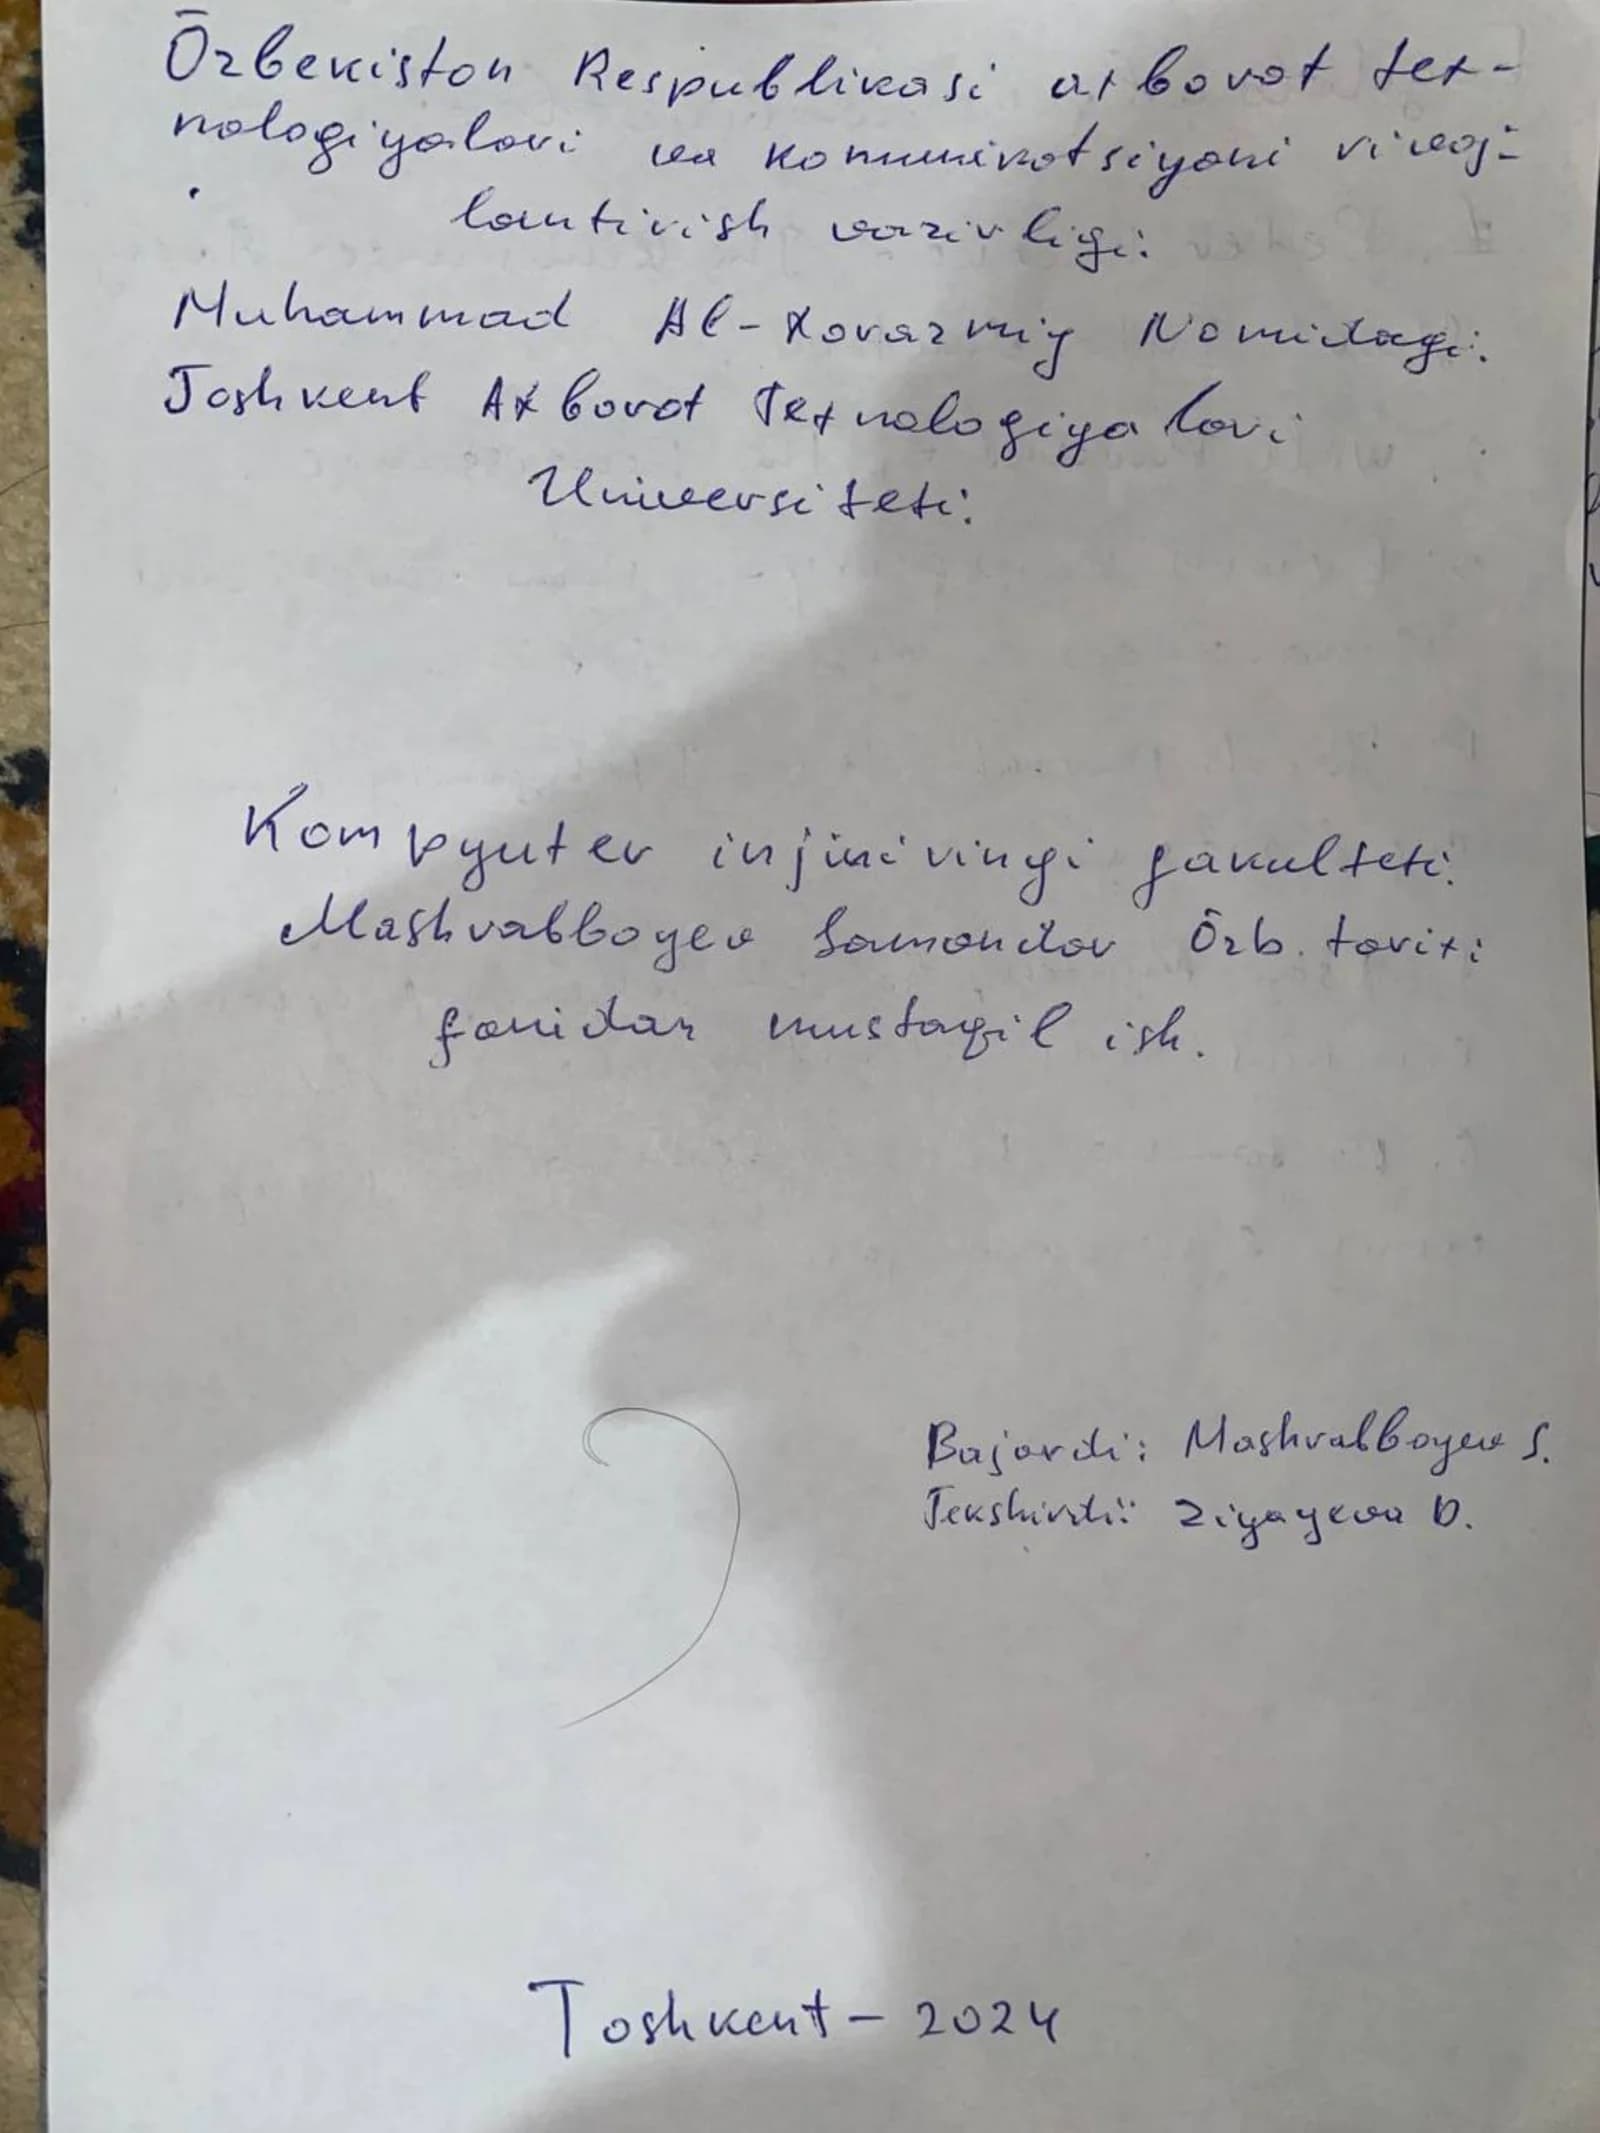 Ōzbekiston Respublikasi axborot tex-
nologiyalari va komunikatsiyani rivoj-
lantirish vazirligi:
Muhammad Al-Xorazmiy Nomidagi:
Toshkent Axborot Texnologiyalari
Universiteti:
Kompyuter injiniringi fakulteti:
Mashrabboyev Samandar Ōzb. tarixi
fanidan mustaqil ish.
Bajardi: Mashrabboyev S.
Tekshirdi: Ziyayeva D.
Toshkent - 2024